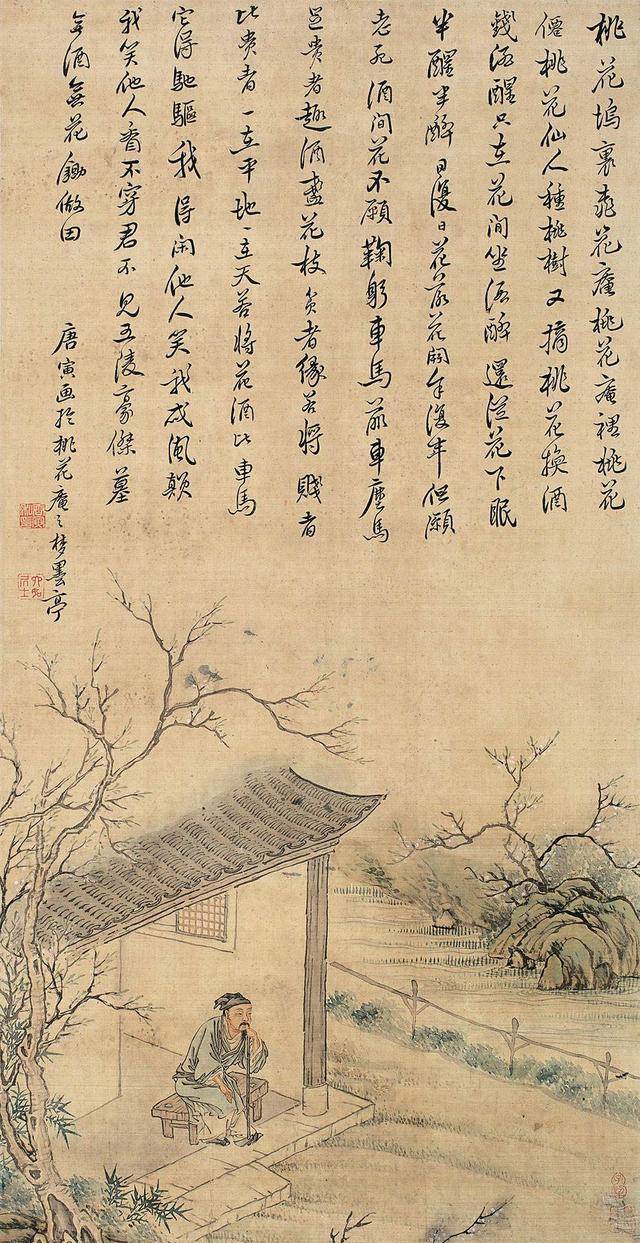 桃花塢裏桃花庵桃花庵裡桃花
僊桃花仙人種桃樹又摘桃花換酒
錢酒醒只在花間坐酒醉還從花下眠
半醒半醉日復日花落花開年復年但願
老死酒間花不願鞠躬車馬前車塵馬
足貴者趣酒盞花枝貧者緣若將賤者
比貴者一在平地一在天若將花酒比車馬
它得馳驅我得閑他人笑我成風顛
我笑他人看不穿君不見五陵豪傑墓
無酒無花鋤做田
唐寅画於桃花庵之梦墨亭
六如居士